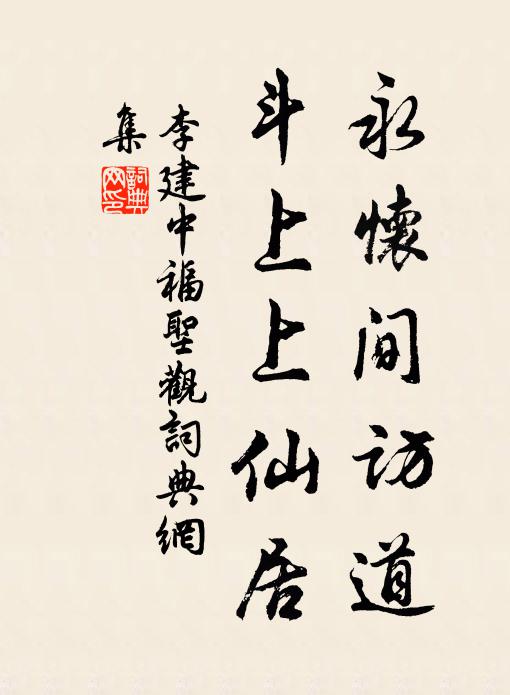 永懷间访道
斗上上仙居
李建中福聖觀詞典網
集
詞典
网印